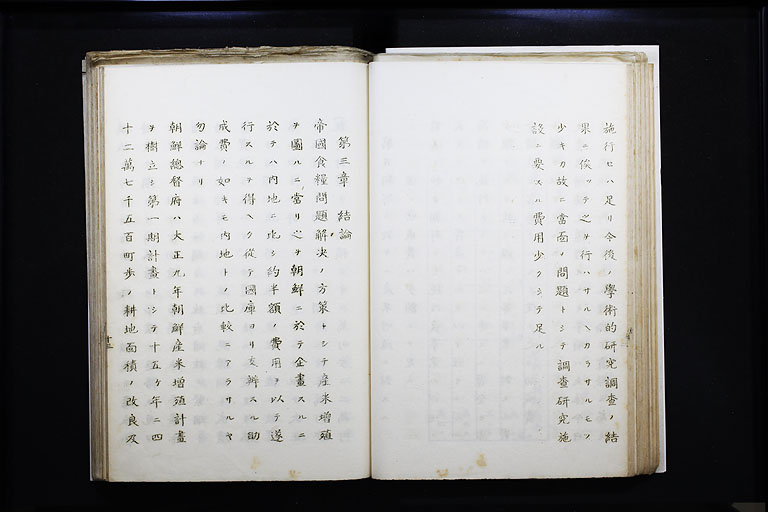 施行セハ足リ今後ノ學術的研究調查ノ結
果ニ俟ッテ之ヲ行ハサルヘカラサルモノ
少キカ故ニ當面ノ問題トシテ調查研究施
設ニ要スル費用少クシテ足ル
第三章 結論
帝國食糧問題解決ノ方策トシテ産米增殖
ヲ圖ルニ當リ之ヲ朝鮮ニ於テ企畫スルニ
於テハ内地ニ比シ約半額ノ費用ヲ以テ遂
行スルヲ得ヘク從テ國庫ヨリ支辨スル助
成費ノ如キモ内地トノ比較ニアラサルヤ
勿論ナリ
朝鮮總督府ハ大正九年朝鮮産米增殖計畫
ヲ樹立シ第一期計畫トシテ十五ケ年ニ四
十二萬七千五百町歩ノ耕地面積ノ改良及